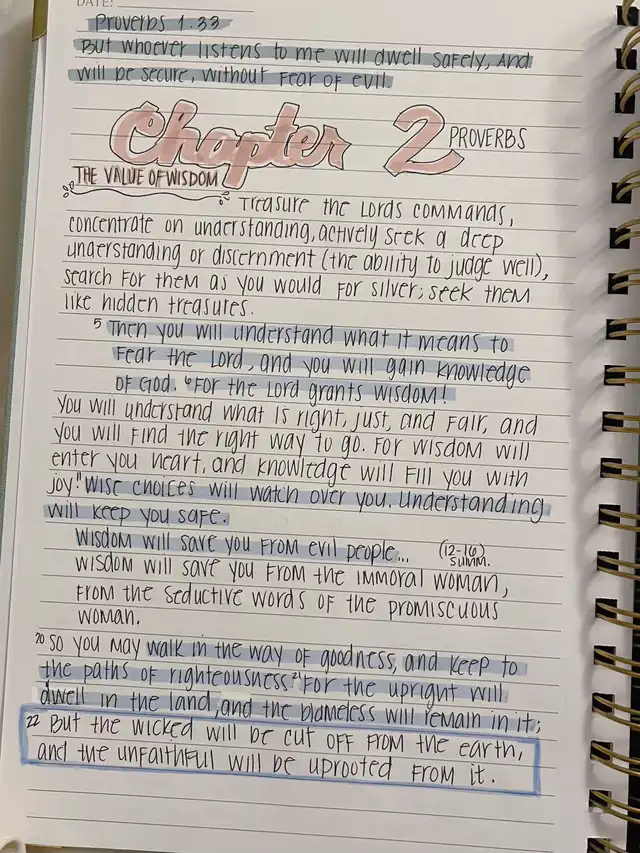 DATE:
Proverbs 1.33
But whoever listens to me will dwell safely, And
will be secure, without fear of evil
Chapter 2 PROVERBS
THE VALUE OF WISDOM
Treasure the Lords commands,
concentrate on understanding, actively seek a deep
understanding or discernment (the ability to judge well),
search for them as you would for silver; seek them
like hidden treasures.
5 Then you will understand what it means to
fear the Lord, and you will gain knowledge
of God. 6 For the Lord grants wisdom!
You will understand what is right, just, and fair, and
you will find the right way to go. For wisdom will
enter you heart, and knowledge will fill you with
joy. 11 Wise choices will watch over you. Understanding
will keep you safe.
Wisdom will save you from evil people... (12-16) SUMM.
Wisdom will save you from the immoral woman,
from the seductive words of the promiscuous
woman.
20 So you may walk in the way of goodness, and keep to
the paths of righteousness. 21 For the upright will
dwell in the land, and the blameless will remain in it;
22 But the wicked will be cut off from the earth,
and the unfaithful will be uprooted from it.